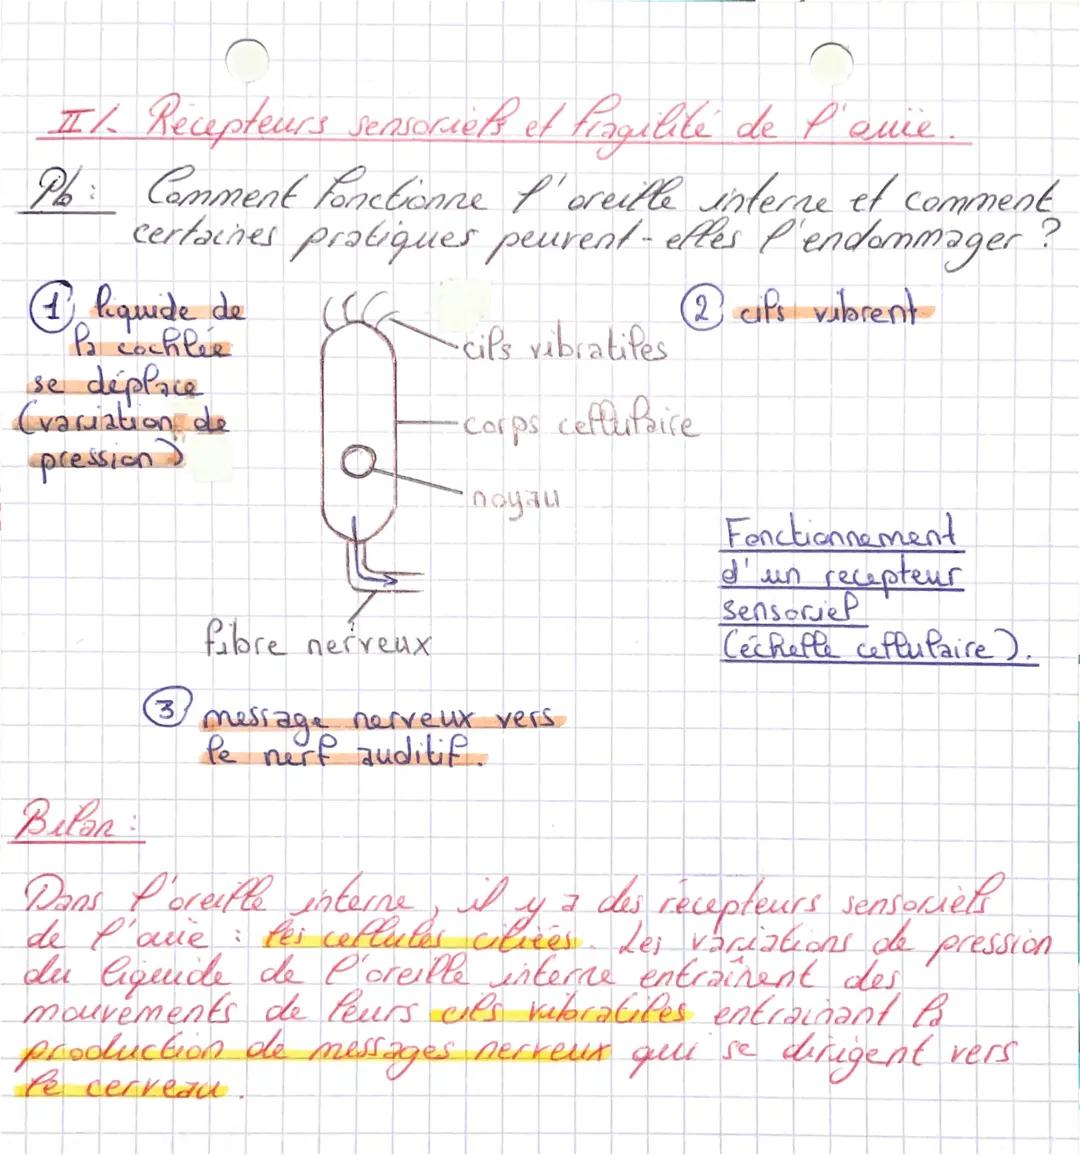 II/. Récepteurs sensoriels et fragilité de l'ouïe.
Pb : Comment fonctionne l'oreille interne et comment
certaines pratiques peuvent-elles l'endommager ?
1 liquide de
la cochlée
se déplace
(variation de
pression)
2 cils vibrent
cils vibratiles
corps cellulaire
noyau
Fonctionnement
d'un recepteur
sensoriel
(échelle cellulaire).
fibre nerveux
3 message nerveux vers
le nerf auditif.
Bilan :
Dans l'oreille interne, il y a des récepteurs sensoriels
de l'ouïe : les cellules ciliées. Les variations de pression
du liquide de l'oreille interne entraînent des
mouvements de leurs cils vibratiles entrainant la
production de messages nerveux qui se dirigent vers
le cerveau.